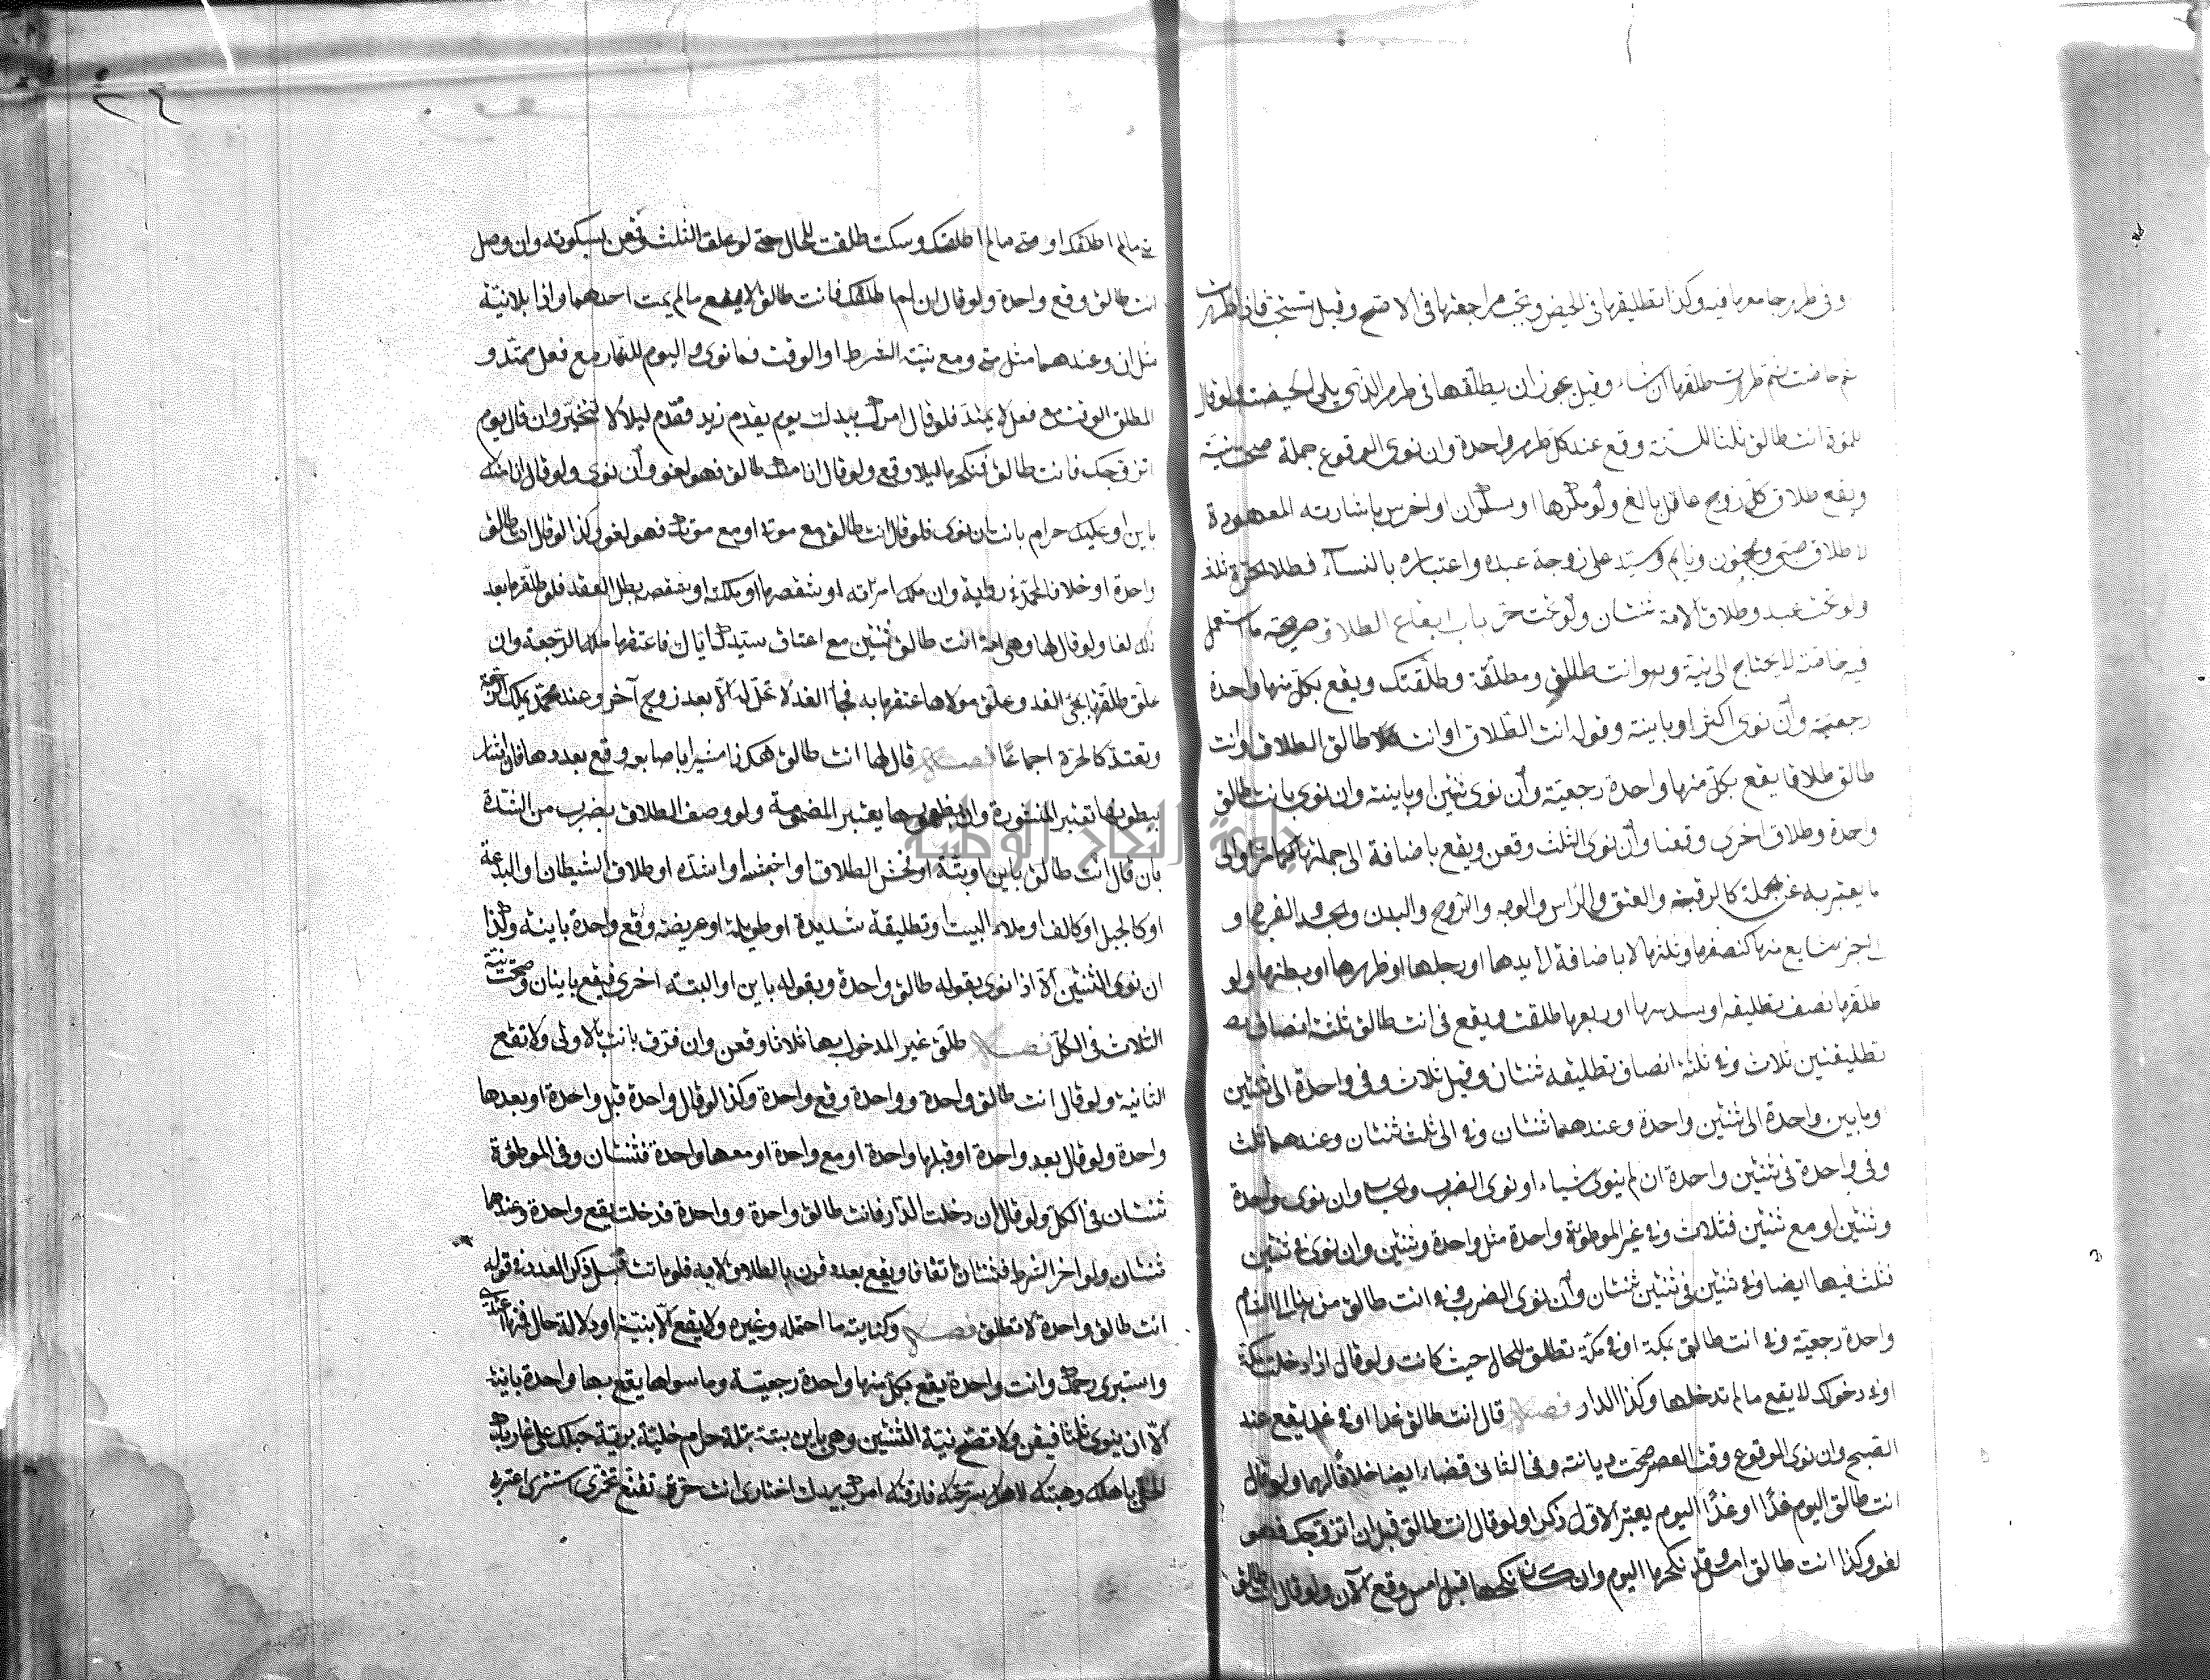 وفي طهر جامعها فيه وكذا تطليقها في الحيض وتجب مراجعتها في الاصح وقيل تستحب فاذا طهرت
ثم حاضت ثم طهرت طلقها ان شاء وقيل يجوز ان يطلقها في طهر الذي يلي الحيضة ولو قال
للموطوءة انت طالق ثلثا للسنة وقع عند كل طهر واحدة وان نوى الوقوع جملة صحت نيته
ويقع طلاق كل زوج عاقل بالغ ولو مكرها او سكران او اخرس باشارته المعهودة
لا طلاق صبي ومجنون ونايم وسيد على زوجة عبده واعتباره بالنساء فطلاق الحرة ثلث
ولو تحت عبد وطلاق الامة ثنتان ولو تحت حر باب ايقاع الطلاق صريحه ما استعمل
فيه خاصة لا يحتاج الى نية وهو انت طالق ومطلقة وطلقتك ويقع بكل منها واحدة
رجعية وان نوى اكثر او باينة وقوله انت الطلاق او انت طالق الطلاق وانت
طالق طلاقا يقع بكل منها واحدة رجعية وان نوى ثنتين او باينة وان نوى بانت طالق
واحدة وطلاق اخرى وقعتا وان نوى الثلث وقعن ويقع باضافة الى جملتها كما مر او الى
ما يعبر به عن الجملة كالرقبة والعنق والراس والوجه والروح والبدن والجسد والفرج او
الى جزء شايع منها كنصفها وثلثها لا باضافة الى يدها او رجلها او ظهرها او بطنها ولو
طلقها نصف تطليقة او سدسها او ربعها طلقت ويقع في انت طالق ثلثة انصاف
تطليقتين ثلاث وفي ثلثة انصاف تطليقة ثنتان وقيل ثلاث وفي واحدة الى ثنتين
وما بين واحدة الى ثنتين واحدة وعندهما ثنتان وفي الى ثلث ثنتان وعندهما ثلث
وفي واحدة في ثنتين واحدة ان لم ينوي شياء او نوى الضرب والحساب وان نوى واحدة
وثنتين او مع ثنتين فثلاث وفي غير الموطوءة واحدة مثل واحدة وثنتين وان نوى مع ثنتين
فثلث فيها ايضا وفي ثنتين في ثنتين ثنتان وان نوى الضرب وفي انت طالق من هنا الى الشام
واحدة رجعية وفي انت طالق بمكة او في مكة تطلق للحال حيث كانت ولو قال اذا دخلت مكة
او في دخولك لا يقع ما لم تدخلها وكذا الدار فصل قال انت طالق غدا او في غد يقع عند
الصبح وان نوى الوقوع وقت العصر صحت ديانة وفي الثاني قضاء ايضا خلافا لهما ولو قال
انت طالق اليوم غدا او غدا اليوم يعتبر الاول ذكرا ولو قال انت طالق قبل ان اتزوجك فهو
لغو وكذا انت طالق امس وقد نكحها اليوم وان كان نكحها قبل امس وقع الآن ولو قال انت طالق
ما لم اطلقك او متى ما لم اطلقك وسكت طلقت للحال حتى لو علق الثلث وقعن بسكوته وان وصل
انت طالق وقع واحدة ولو قال ان لم اطلقك فانت طالق لا يقع ما لم يمت احدهما واذا بلا نية
مثل ان وعندهما مثل متى ومع نية الشرط او الوقت فما نوى واليوم للنهار مع فعل ممتد و
المطلق الوقت مع فعل لا يمتد فلو قال امرك بيدك يوم يقدم زيد فقدم ليلا لا تتخير وان قال يوم
اتزوجك فانت طالق فنكحها ليلا وقع ولو قال انا منك طالق فهو لغو وان نوى ولو قال انا منك
باين او عليك حرام بانت ان نوى فلو قال انت طالق مع موتي او مع موتك فهو لغو وكذا لو قال انت طالق
واحدة او لا خلافا لمحمد في رواية وان ملك امراته او شقصها او ملكته او شقصه بطل العقد فلو طلقها بعد
ذلك لغا ولو قال لها وهي امة انت طالق ثنتين مع اعتاق سيدك اياك فاعتقها ملك الرجعة وان
علق طلقتها بمجئ الغد وعلق مولاها عتقها به فجاء الغد لا تحل له الا بعد زوج آخر وعند محمد يملك الرجعة
وتعتد كالحرة اجماعا فصل قال لها انت طالق هكذا مشيرا باصابعه وقع بعددها فان اشار
ببطونها تعتبر المنشورة وان بظهورها يعتبر المضمومة ولو وصف الطلاق بضرب من الشدة
بان قال انت طالق باين او بتة او افحش الطلاق او اخبثه او اشده او طلاق الشيطان او البدعة
او كالجبل او كالف او ملاء البيت او تطليقة شديدة او طويلة او عريضة وقع واحدة باينة وكذا
ان نوى الثنتين الا اذا نوى بقوله طالق واحدة وبقوله باين او البتة اخرى فيقع باينان وصحت نية
الثلاث في الكل فصل طلق غير المدخول بها ثلاثا وقعن وان فرق بانت بالاولى ولا تقع
الثانية ولو قال انت طالق واحدة وواحدة وقع واحدة وكذا لو قال واحدة قبل واحدة او بعدها
واحدة ولو قال بعد واحدة او قبلها واحدة او مع واحدة او معها واحدة فثنتان وفي الموطوءة
ثنتان في الكل ولو قال ان دخلت الدار فانت طالق واحدة وواحدة فدخلت يقع واحدة وعندهما
ثنتان ولو اخر الشرط فثنتان اتفاقا ويقع بعدد قرن بالطلاق لا به فلو ماتت قبل ذكر العدد في قوله
انت طالق واحدة لا تطلق فصل وكنايته ما احتمله وغيره ولا يقع الا بنية او دلالة حال فمنها اعتدي
واستبري رحمك وانت واحدة يقع بكل منها واحدة رجعية وما سواها يقع بها واحدة باينة
الا ان ينوي ثلثا فيقعن ولا تصح نية الثنتين وهي باين بتة بتلة حرام خلية برية حبلك على غاربك
الحقي باهلك وهبتك لاهلك سرحتك فارقتك امرك بيدك اختاري انت حرة تقنعي تخمري استتري اغربي
جامعة النجاح الوطنية